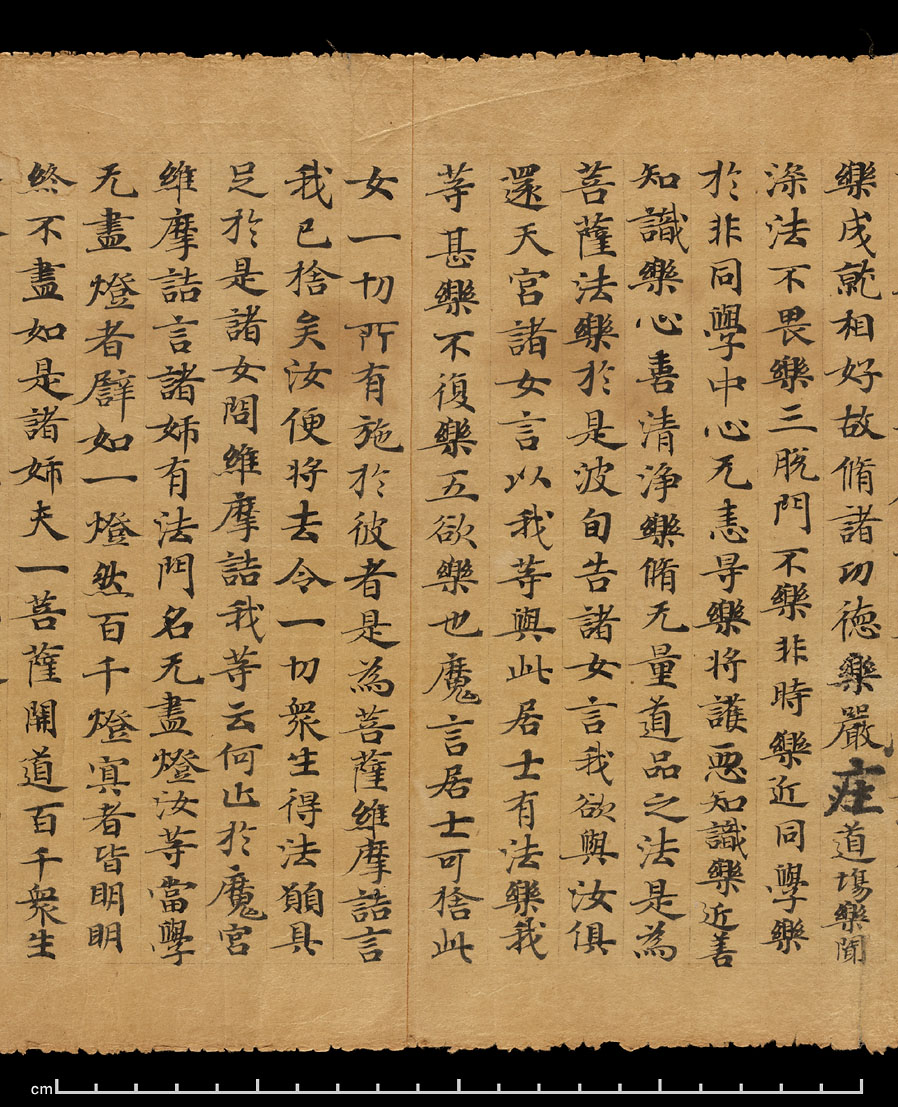 樂成就相好故脩諸功德樂嚴疰道場樂聞
深法不畏樂三脫門不樂非時樂近同學樂
於非同學中心无恚㝵樂将護惡知識樂近善
知識樂心善清淨樂脩无量道品之法是為
菩薩法樂於是波旬告諸女言我欲與汝俱
還天宮諸女言以我等與此居士有法樂我
等甚樂不復樂五欲樂也魔言居士可捨此
女一切所有施於彼者是為菩薩維摩詰言
我已捨矣汝便将去令一切衆生得法願具
足於是諸女問維摩詰我等云何止於魔宮
維摩詰言諸姊有法門名无盡燈汝等當學
无盡燈者譬如一燈然百千燈冥者皆明明
終不盡如是諸姊夫一菩薩開道百千衆生
cm